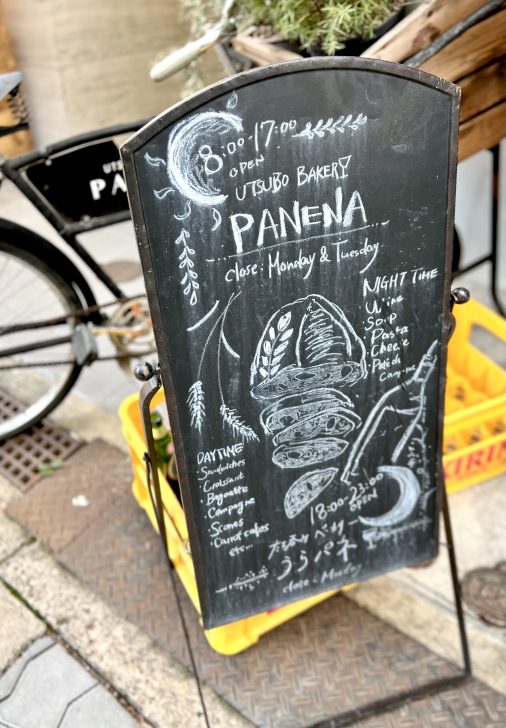 8:00-17:00
OPEN
UTSUBO BAKERY
PANENA
close : Monday & Tuesday
NIGHT TIME
Wine
Soup
Pasta
Cheese
Pate de
Campagne
DAYTIME
・Sandwiches
・Croissant
・Baguette
・Campagne
・Scones
・Carrot cakes
etc...
18:00-23:00
OPEN
うらパネ
close : Monday
UTSU
PA
KIRIN